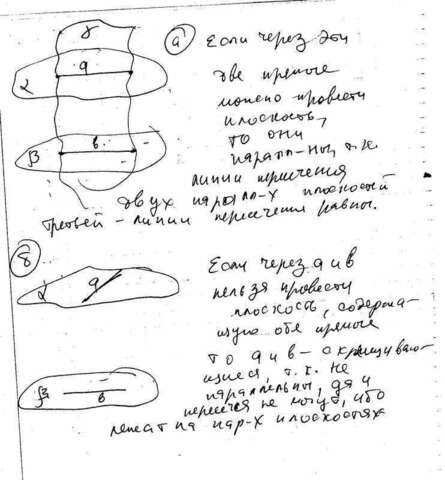 γ
а) Если через эти
α а две прямые
можно провести
плоскость,
β в то они
паралл-ны, т.к.
линии пересечения
двух паралл-х плоскостей
третьей - линии пересечения равны.
б) Если через а и в
α а нельзя провести
плоскость, содержа-
щую обе прямые
то а и в - скрещиваю-
щиеся, т.к. не
β в параллельны, да и
пересеч не могут, ибо
лежат на пар-х плоскостях